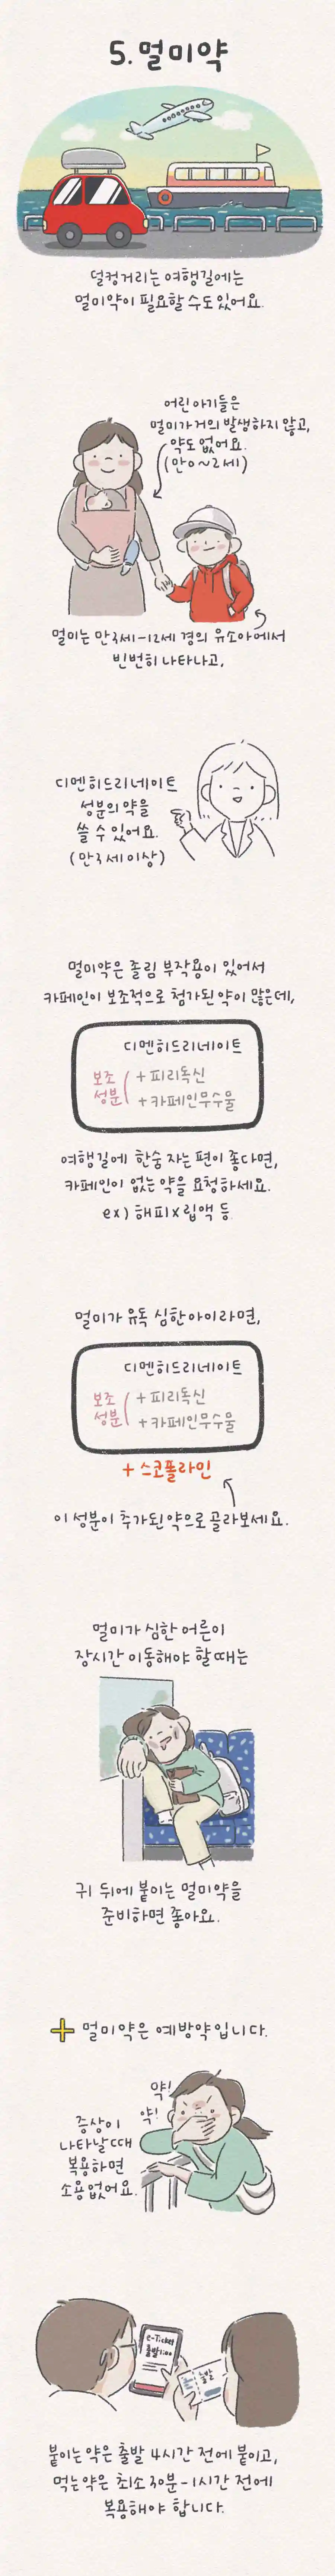 5. 멀미약
덜컹거리는 여행길에는
멀미약이 필요할 수도 있어요.
어린 아기들은
멀미가 거의 발생하지 않고,
약도 없어요.
(만0~2세)
멀미는 만3세-12세 경의 유소아에서
빈번히 나타나고,
디멘히드리네이트
성분의 약을
쓸 수 있어요.
(만3세 이상)
멀미약은 졸림 부작용이 있어서
카페인이 보조적으로 첨가된 약이 많은데,
디멘히드리네이트
보조
성분
+ 피리독신
+ 카페인무수물
여행길에 한숨 자는 편이 좋다면,
카페인이 없는 약을 요청하세요.
ex) 해피x립액 등
멀미가 유독 심한 아이라면,
디멘히드리네이트
보조
성분
+ 피리독신
+ 카페인무수물
+ 스코폴라민
이 성분이 추가된 약으로 골라보세요.
멀미가 심한 어른이
장시간 이동해야 할 때는
귀 뒤에 붙이는 멀미약을
준비하면 좋아요.
+ 멀미약은 예방약입니다.
약!
약!
증상이
나타날 때
복용하면
소용없어요.
e-Ticket
출발
출발
붙이는 약은 출발 4시간 전에 붙이고,
먹는 약은 최소 30분-1시간 전에
복용해야 합니다.